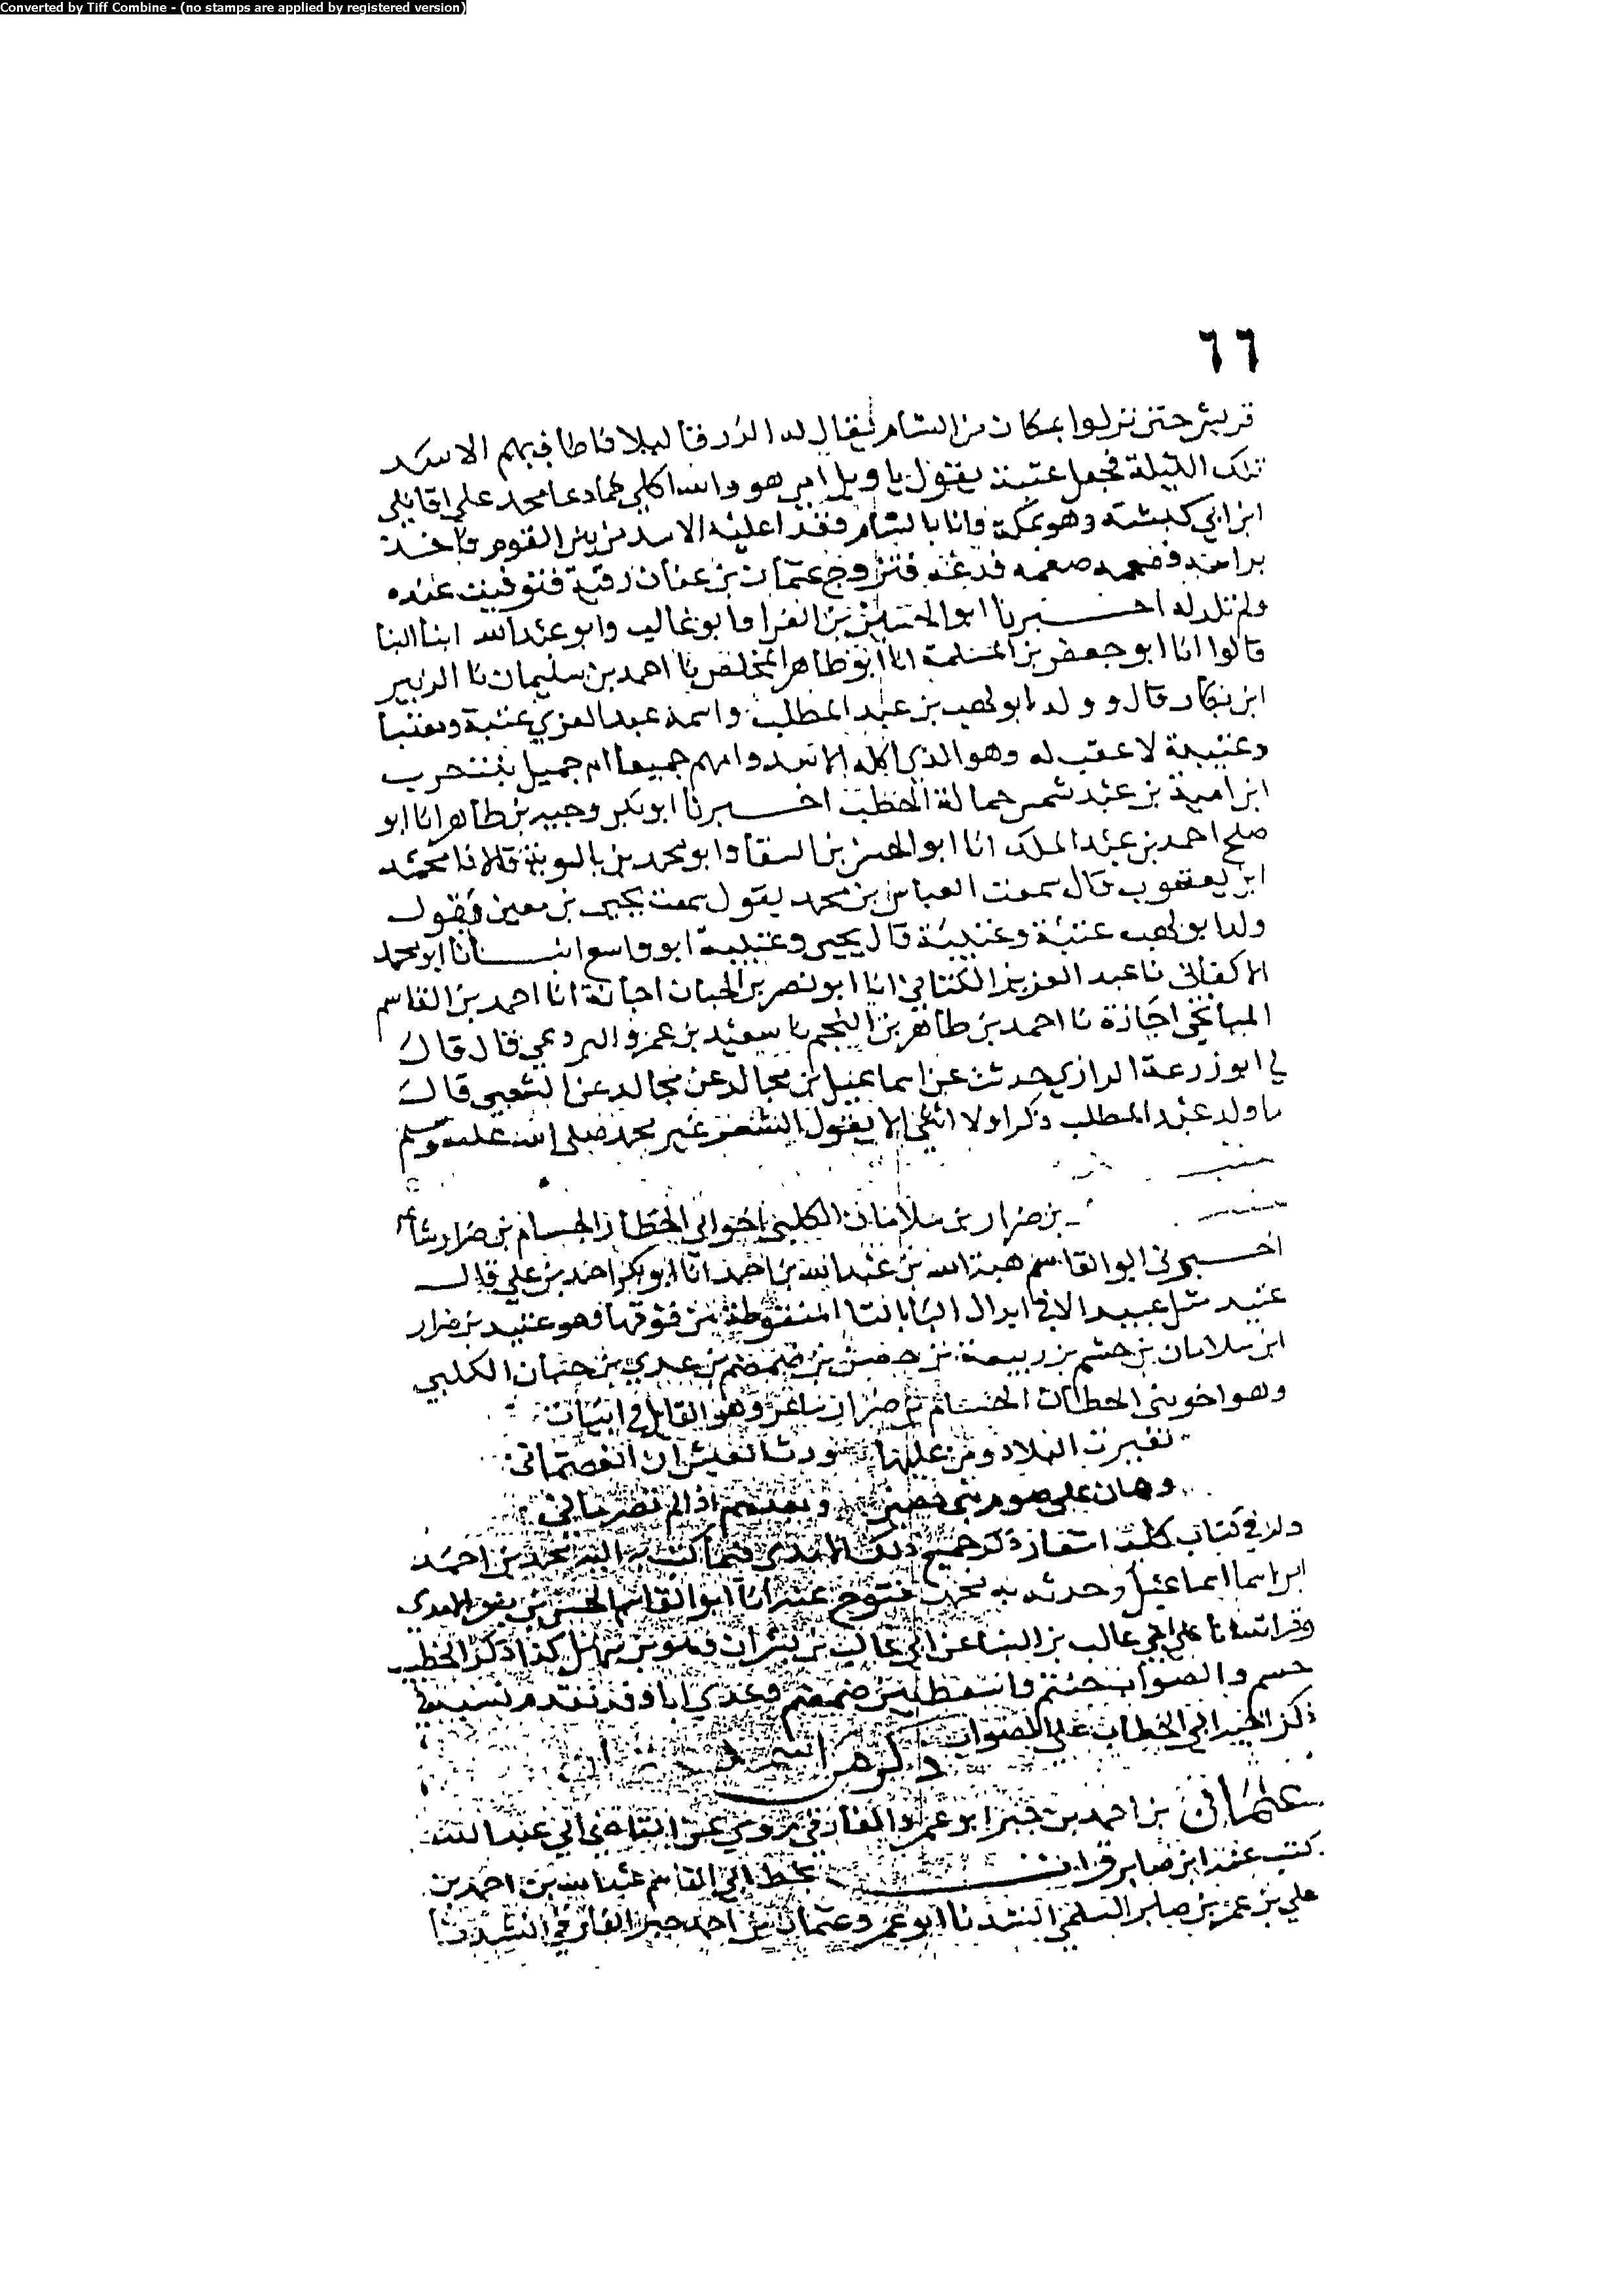 Converted by Tiff Combine - (no stamps are applied by registered version)
٦٦
قريش حتى نزلوا بمكان من الشام يقال له الزرقا ليلا فاطاف بهم الاسد
تلك الليلة فجعل عتيبة يقول يا ويل امي هو والله اكلي كما دعا محمد علي اقاتلي
ابن ابي كبشة وهو بمكة وانا بالشام فغدا عليه الاسد من بين القوم فاخذ
براسه فضغمه ضغمة فدغه فتزوج عثمان بن عفان رقية فتوفيت عنده
ولم تلد له اخبرنا ابو الحسين بن الفرا وابو غالب وابو عبد الله ابنا البنا
قالوا انا ابو جعفر بن المسلمة انا ابو طاهر المخلص نا احمد بن سليمان نا الزبير
ابن بكار قال وولد ابو لهب بن عبد المطلب واسمه عبد العزي عتبة ومعتبا
وعتيبة لا عقب له وهو الذي اكله الاسد وامهم جميعا ام جميل بنت حرب
ابن امية بن عبد شمس حمالة الحطب اخبرنا ابو بكر وجيه بن طاهر انا ابو
صلح احمد بن عبد الملك انا ابو الحسن بن السقا وابو محمد بن بالوية قالا نا محمد
ابن يعقوب قال سمعت العباس بن محمد يقول سمعت يحيى بن معين يقول
ولد ابو لهب عتبة وعتيبة قال يحيى وعتيبة ابو واسع انبانا ابو محمد
الاكفاني نا عبد العزيز الكتاني انا ابو نصر بن الجبان اجازة انا احمد بن القاسم
الميانجي اجازة نا احمد بن طاهر بن النجم نا سعيد بن عمرو البردعي قال قال
لي ابو زرعة الرازي حدثت عن اسماعيل بن مجالد عن مجالد عن الشعبي قال
ما ولد عبد المطلب ذكرا ولا انثى الا يقول الشعر غير محمد صلى الله عليه وسلم
بن ضرار بن سلامان الكلبي اخو ابي الخطار الحسام بن ضرار شاعر
اخبرني ابو القاسم هبة الله بن عبد الله بن احمد انا ابو بكر احمد بن علي قال
عتيد مثل عبيد الا في ابدال البا بالتا المنقوطة من فوقها فهو عتيد بن ضرار
ابن سلامان بن حشم بن ربيعة بن حصن بن ضمضم بن عدي بن جناب الكلبي
وهو اخو بني الخطار الحسام بن ضرار شاعر وهو القايل في ابيات
تغيرت البلاد ومن عليها
وهان على
في كتاب كلب ذكر جميع ذلك الامدي فيما كتب به الي محمد بن احمد
اسماعيل وحدثه به محمد فتوح عنه انا ابو القاسم الحسن بن بشر الامدي
وقراته انا على ابي غالب بن البنا عن ابي غالب بن بشران كذا ذكر الخطيب
حسم والصواب جشم واسقط بين ضمضم وعدي ابا وقد تقدم نسبه في
ذكر اخيه ابي الخطار على الصواب
ذكر من اسمه عثمان
عثمان بن احمد بن ابو عمرو روى عن ابي عبد الله
كتب عنه ابن صابر قرات بخط ابي القاسم عبد الله بن احمد بن
علي بن عمر بن صابر السلمي انشدنا ابو عمرو عثمان بن احمد انشدنا